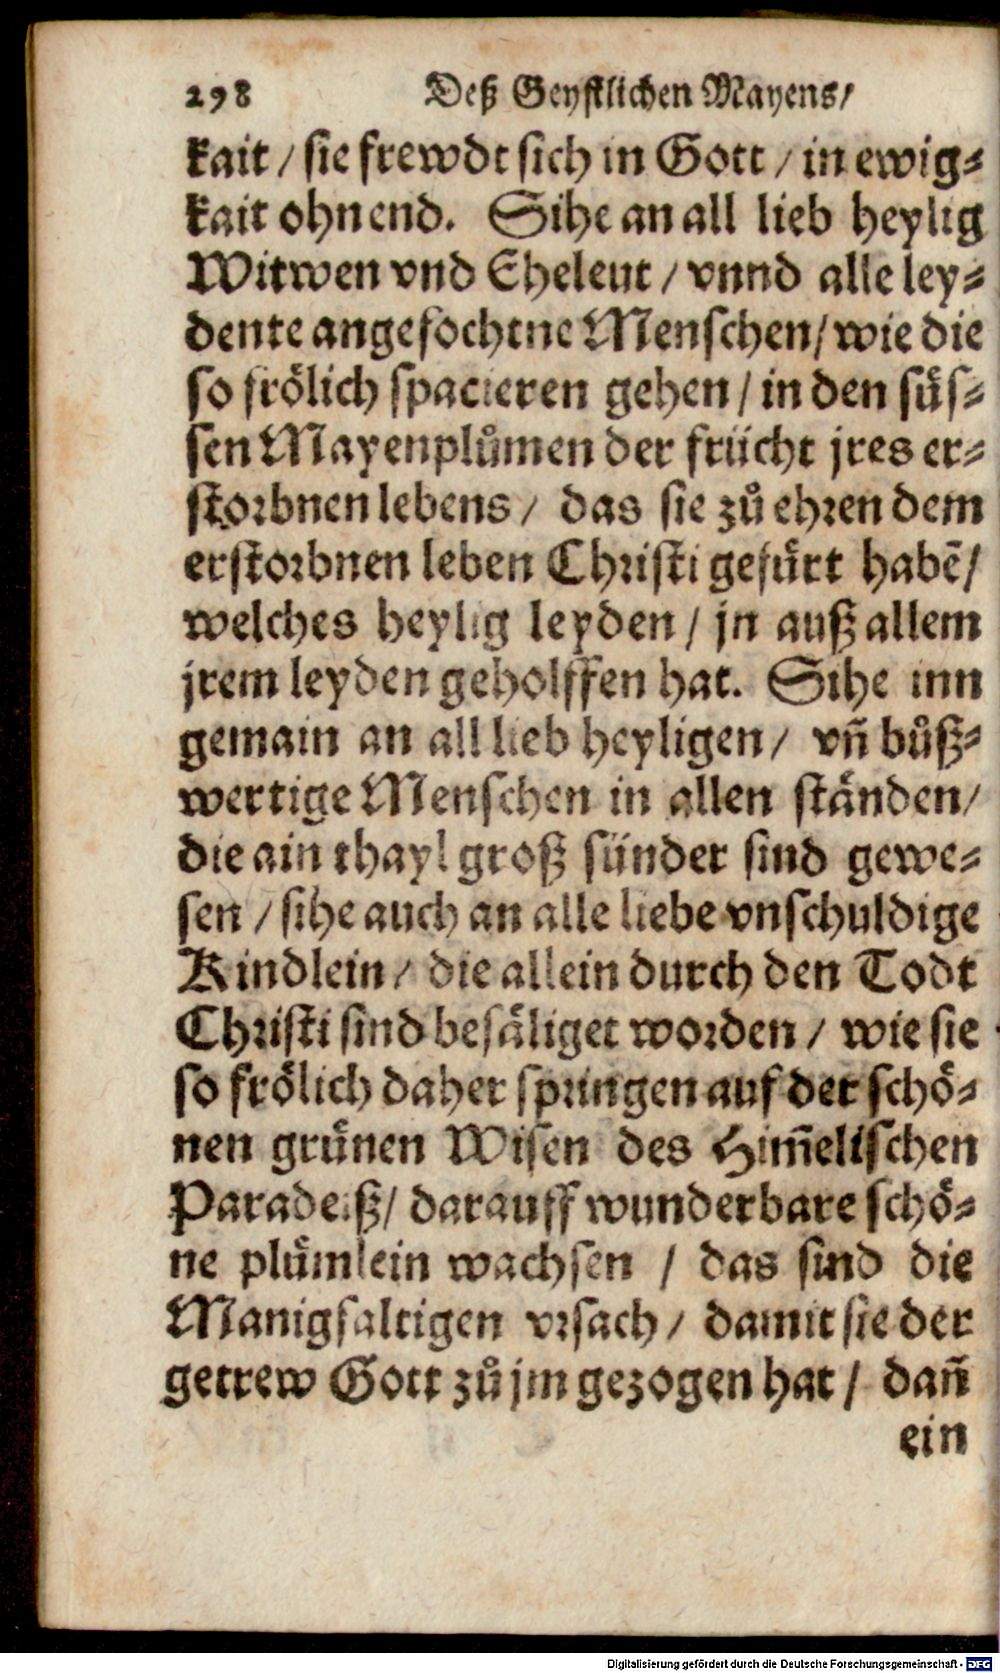 298 Deß Geystlichen Mayens/
kait / sie frewdt sich in Gott / in ewig⸗
kait ohn end. Sihe an all lieb heylig
Witwen vnd Eheleut / vnnd alle ley⸗
dente angefochtne Menschen/ wie die
so froͤlich spacieren gehen / in den suͤs⸗
sen Mayenpluͦmen der frücht jres er⸗
storbnen lebens / das sie zuͦ ehren dem
erstorbnen leben Christi gefuͤrt habē/
welches heylig leyden / jn auß allem
jrem leyden geholffen hat. Sihe inn
gemain an all lieb heyligen / vñ buͦß⸗
wertige Menschen in allen staͤnden/
die ain thayl groß sünder sind gewe⸗
sen / sihe auch an alle liebe vnschuldige
Kindlein / die allein durch den Todt
Christi sind besaͤliget worden / wie sie
so froͤlich daher springen auf der schoͤ⸗
nen gruͤnen Wisen des Him̄elischen
Paradeiß/ darauff wunderbare schoͤ⸗
ne pluͤmlein wachsen / das sind die
Manigfaltigen vrsach / damit sie der
getrew Gott zuͦ jm gezogen hat / dañ
ein
Digitalisierung gefördert durch die Deutsche Forschungsgemeinschaft - DFG